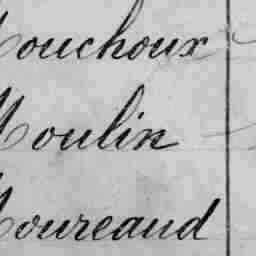 Mouchoux
Moulin
Moureaud